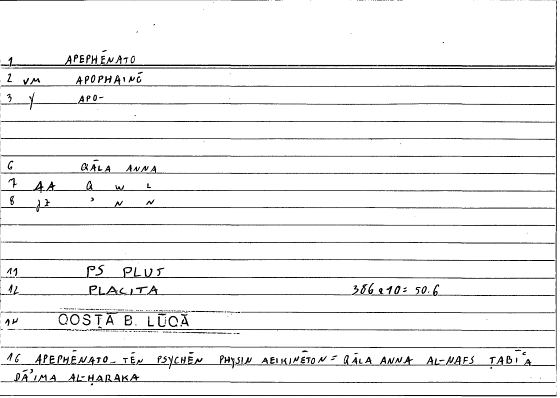 1 APEPHĒNATO
2 VM APOPHAINŌ
3 Y APO-
6 QĀLA ANNA
7 AA Q W L
8 ʾ N N
11 PS PLUT
12 PLACITA 386 a 10 = 50.6
14 QOSṬĀ B. LŪQĀ
16 APEPHĒNATO_ TĒN PSYCHĒN PHYSIN AEIKINĒTON = QĀLA ANNA AL-NAFS ṬABĪʿA
DĀʾIMA AL-ḤARAKA